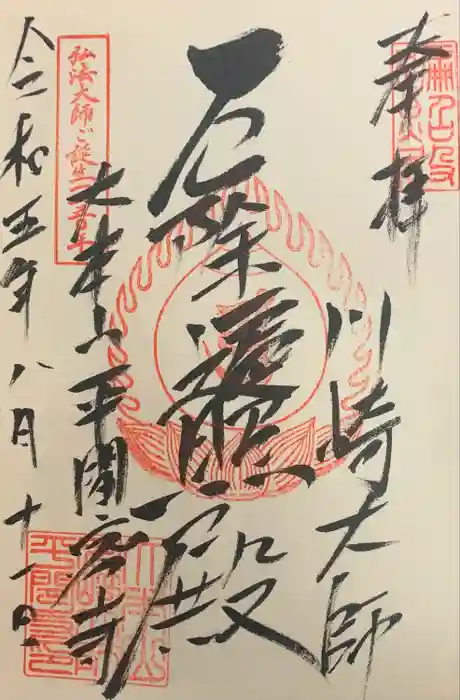 奉拝
川崎大師
厄除遍照殿
大本山平間寺
弘法大師ご誕生一二五〇年
令和五年八月十一日